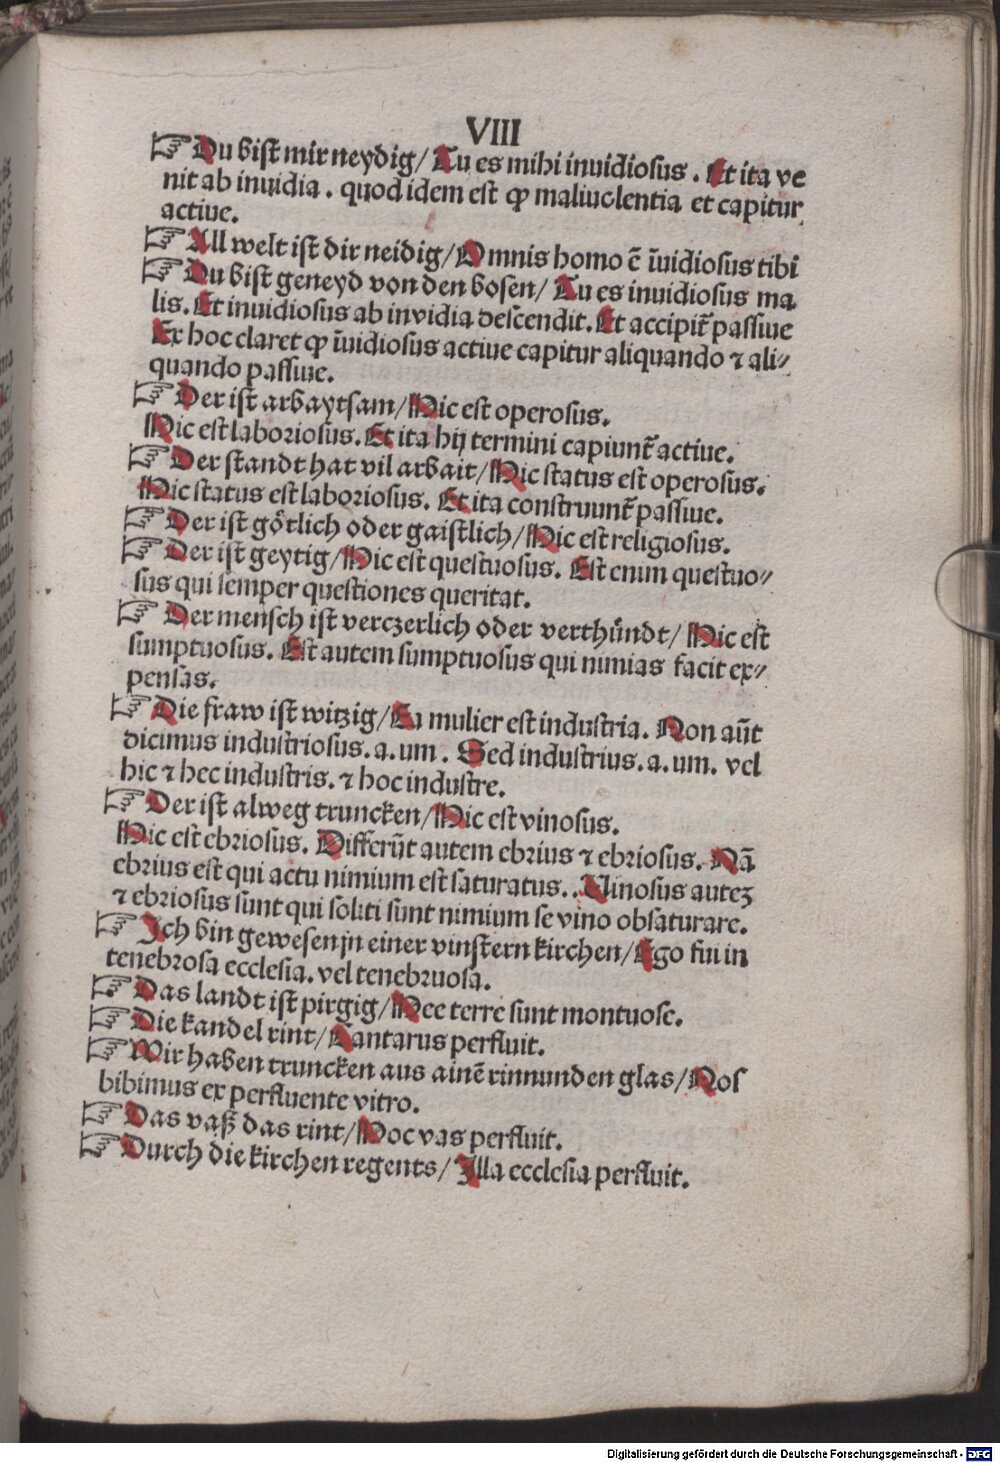 VIII
☞ Du bist mir neydig/ Tu es mihi inuidiosus. Et ita ve
nit ab inuidia. quod idem est ꝙ maliuolentia et capitur
actiue.
☞ All welt ist dir neidig/ Omnis homo ē īuidiosus tibi
☞ Du bist geneyd von den bosen/ Tu es inuidiosus ma
lis. Et inuidiosus ab invidia descendit. Et accipit᷑ passiue
Ex hoc claret ꝙ īuidiosus actiue capitur aliquando ⁊ ali⸗
quando passiue.
☞ Der ist arbaytsam/ Hic est operosus.
Hic est laboriosus. Et ita hij termini capiunt᷑ actiue.
☞ Der standt hat vil arbait/ Hic status est operosus.
Hic status est laboriosus. Et ita construunt᷑ passiue.
☞ Der ist götlich oder gaistlich/ Hic est religiosus.
☞ Der ist geytig/ Hic est questuosus. Est enim questuo⸗
sus qui semper questiones queritat.
☞ Der mensch ist verczerlich oder verthündt/ Hic est
sumptuosus. Est autem sumptuosus qui nimias facit ex⸗
pensas.
☞ Die fraw ist witzig/ Ea mulier est industria. Non aūt
dicimus industriosus. a. um. Sed industrius. a. um. vel
hic ⁊ hec industris. ⁊ hoc industre.
☞ Der ist alweg truncken/ Hic est vinosus.
Hic est ebriosus. Differūt autem ebrius ⁊ ebriosus. Nā
ebrius est qui actu nimium est saturatus.. Vinosus autez
⁊ ebriosus sunt qui soliti sunt nimium se vino obsaturare.
☞ Ich bin gewesen jn einer vinstern kirchen/ Ego fui in
tenebrosa ecclesia. vel tenebruosa.
☞ Das landt ist pirgig/ Hee terre sunt montuose.
☞ Die kandel rint/ Cantarus perfluit.
☞ Wir haben truncken aus ainē rinnunden glas/ Nos
bibimus ex perfluente vitro.
☞ Das vaß das rint/ Hoc vas perfluit.
☞ Durch die kirchen regents/ Illa ecclesia perfluit.
Digitalisierung gefördert durch die Deutsche Forschungsgemeinschaft - DFG